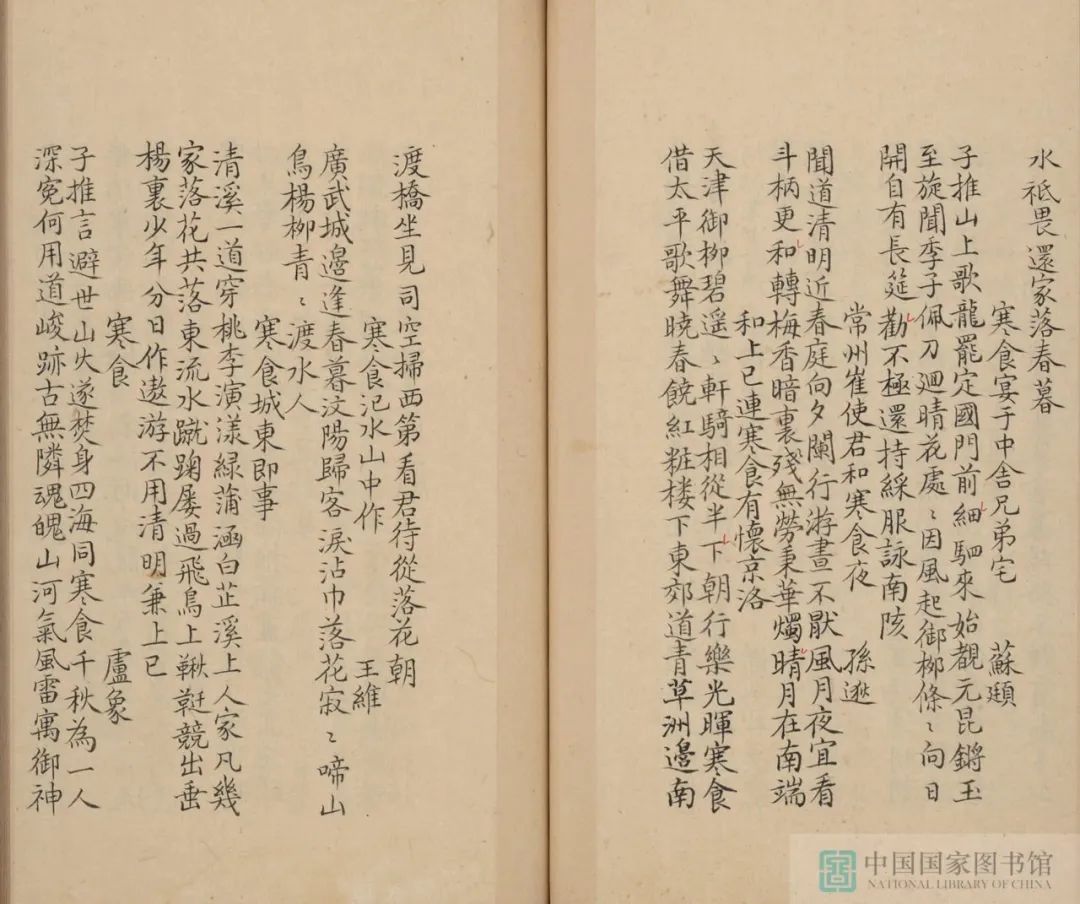 水祗畏還家落春暮
寒食宴于中舎兄弟宅 蘇頲
子推山上歌龍罷定國門前細駟來始覩元昆鏘玉
至旋聞季子佩刀廻晴花處〻因風起御柳條〻向日
開自有長筵勸不極還持綵服詠南陔
常州崔使君和寒食夜 孫逖
聞道清明近春庭向夕闌行游晝不厭風月夜宜看
斗柄更和轉梅香暗裏殘無勞秉華燭晴月在南端
和上已連寒食有懷京洛
天津御柳碧遥〻軒騎相從半下朝行樂光暉寒食
借太平歌舞曉春饒紅粧楼下東郊道青草洲邉南
渡橋坐見司空掃西第看君待從落花朝
寒食汜水山中作 王維
廣武城邉逢春暮汶陽歸客淚沾巾落花寂〻啼山
鳥楊柳青〻渡水人
寒食城東即事
清溪一道穿桃李演漾緑蒲涵白芷溪上人家凡幾
家落花共落東流水蹴踘屡過飛鳥上鞦韆競出垂
楊裏少年分日作遨游不用清明兼上巳
寒食 盧象
子推言避世山火遂焚身四海同寒食千秋為一人
深寃何用道峻跡古無隣魂魄山河氣風雷寓御神
中国国家图书馆
NATIONAL LIBRARY OF CHINA